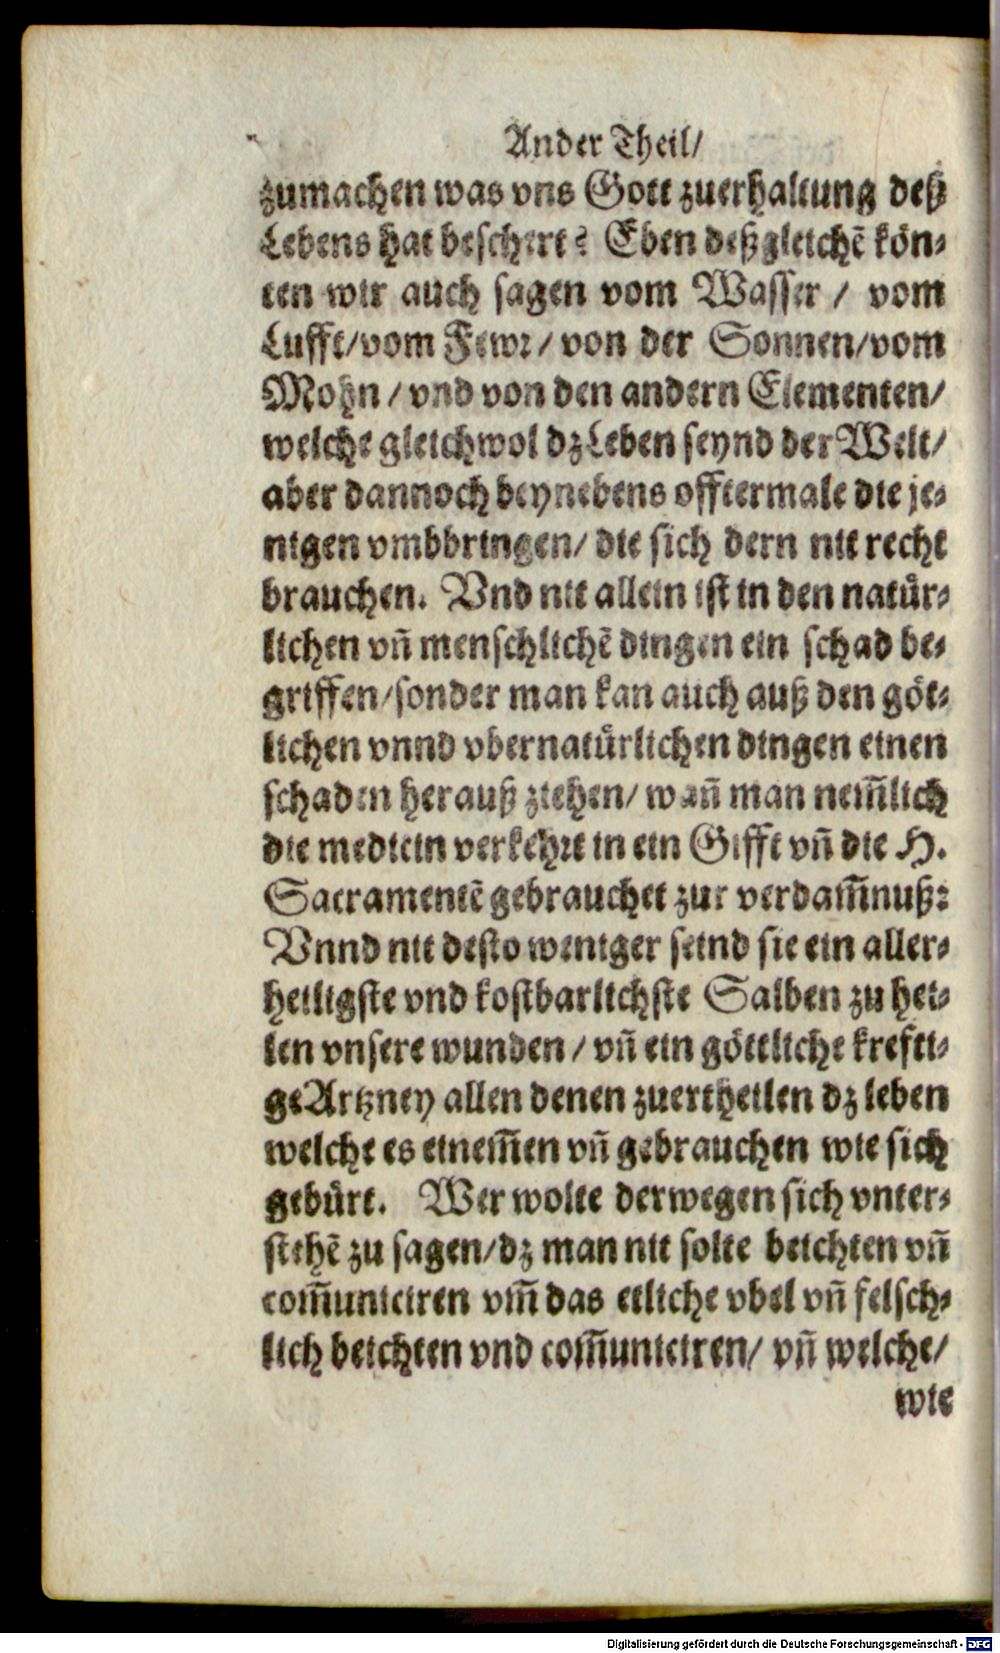 Ander Theil/
zumachen was vns Gott zuerhaltung deß
Lebens hat beschert? Eben deßgleichẽ kön-
ten wir auch sagen vom Wasser / vom
Lufft/vom Fewr/ von der Sonnen/vom
Mohn / vnd von den andern Elementen/
welche gleichwol dz Leben seynd der Welt/
aber dannoch beynebens offtermale die je-
nigen vmbbringen/ die sich dern nit recht
brauchen. Vnd nit allein ist in den natuͤr-
lichen vñ menschlichẽ dingen ein schad be-
griffen/sonder man kan auch auß den göt-
lichen vnnd vbernatuͤrlichen dingen einen
schaden herauß ziehen/ wañ man nem̃lich
die medicin verkehrt in ein Gifft vñ die H.
Sacramentẽ gebrauchet zur verdam̃nuß:
Vnnd nit desto weniger seind sie ein aller-
heiligste vnd kostbarlichste Salben zu hei-
len vnsere wunden / vñ ein göttliche krefti-
ge Artzney allen denen zuertheilen dz leben
welche es einem̃en vñ gebrauchen wie sich
gebuͤrt. Wer wolte derwegen sich vnter-
stehẽ zu sagen/dz man nit solte beichten vñ
com̃uniciren vm̃ das etliche vbel vñ felsch-
lich beichten vnd com̃uniciren/ vñ welche/
wie
Digitalisierung gefördert durch die Deutsche Forschungsgemeinschaft - DFG